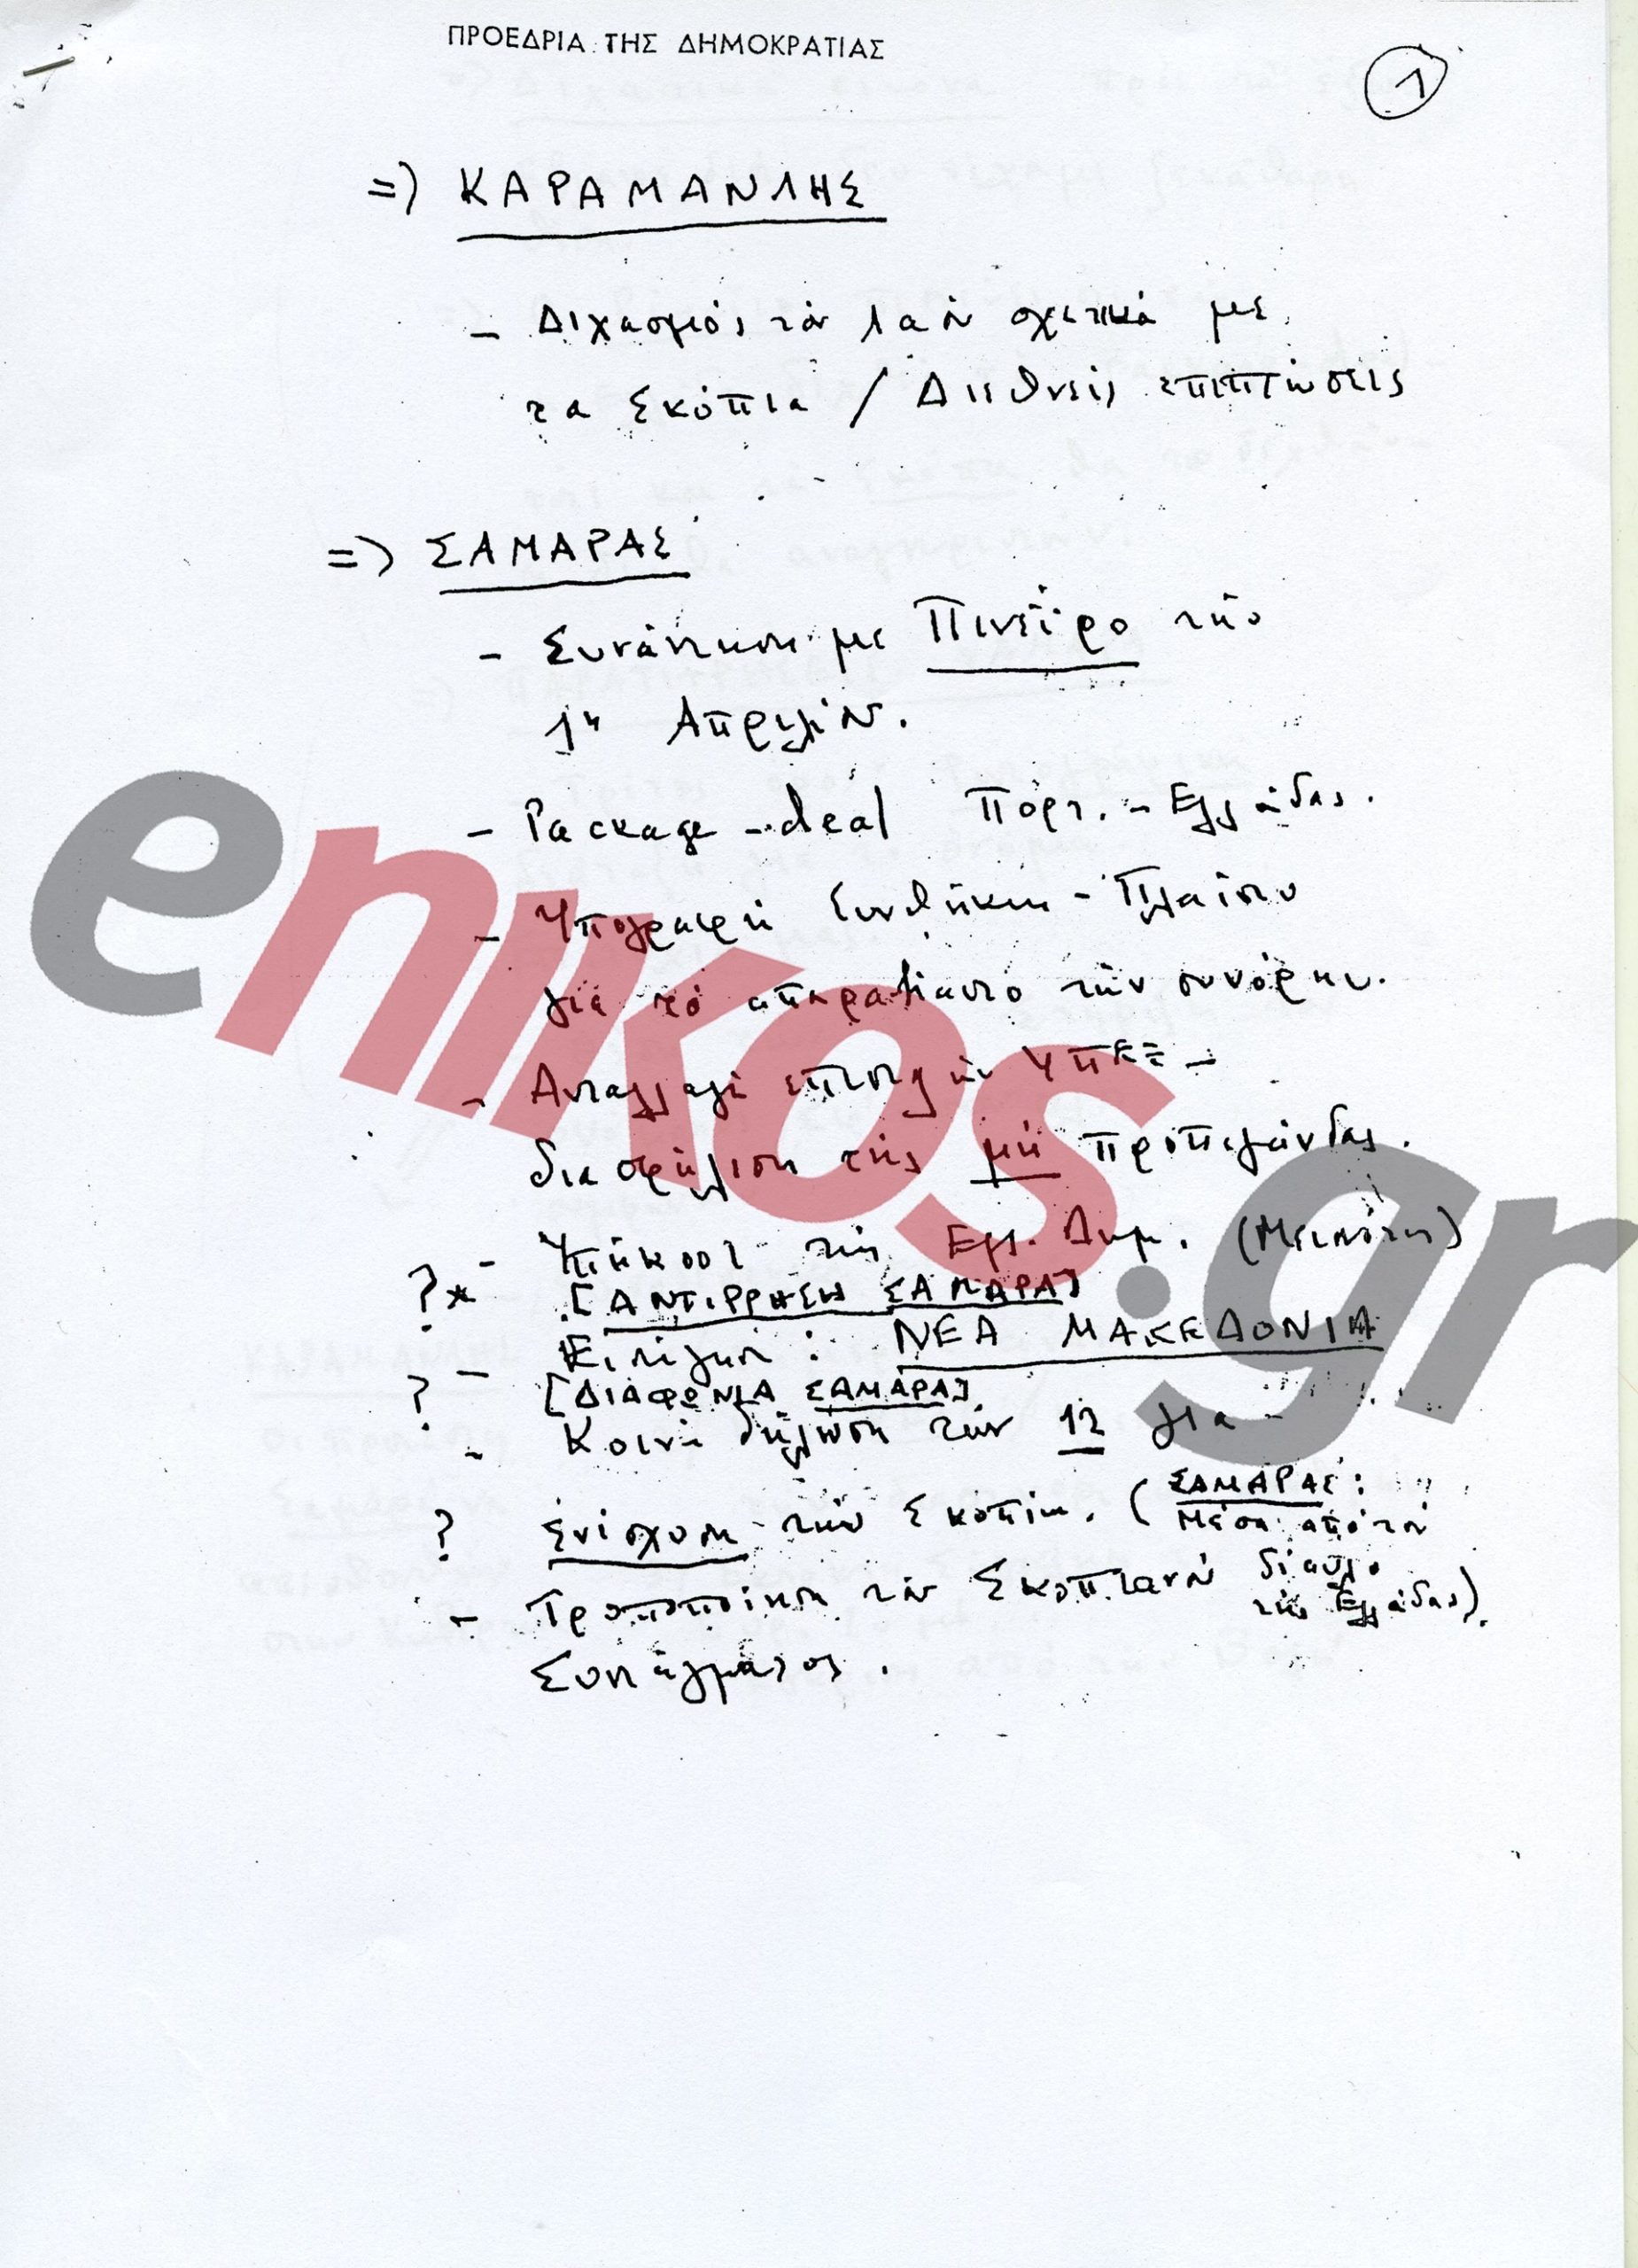 ΠΡΟΕΔΡΙΑ ΤΗΣ ΔΗΜΟΚΡΑΤΙΑΣ
1
=> ΚΑΡΑΜΑΝΛΗΣ
- Διχασμός του λαού σχετικά με
τα Σκόπια / Διεθνείς επιπτώσεις
=> ΣΑΜΑΡΑΣ
- Συνάντηση με Πινέϊρο την
1η Απριλίου.
- Package-deal Πορτ. - Ελλάδας.
- Υπογραφή Συνθήκης - Πλαίσιο
για τό απαραβίαστο τών συνόρων.
- Ανταλλαγή επιστολών ΥΠΕΞ -
διασφάλιση της μή προπαγάνδας.
?* - Υπήκοοι της Ελλ. Δημ. (Μειονότης)
[ΑΝΤΙΡΡΗΣΗ ΣΑΜΑΡΑ]
- Εισήγηση : ΝΕΑ ΜΑΚΕΔΟΝΙΑ
? [ΔΙΑΦΩΝΙΑ ΣΑΜΑΡΑ]
- Κοινή δήλωση τών 12 για
? ενίσχυση των Σκοπίων. (ΣΑΜΑΡΑΣ:
Μέσα από τον
δίαυλο
της Ελλάδας)
- Τροποποίηση του Σκοπιανού
Συντάγματος.
enikos.gr